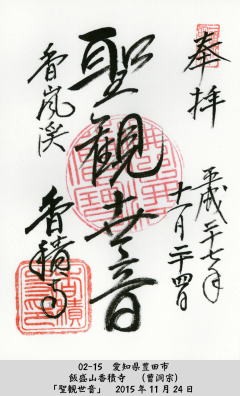 奉拝
平成二十七年
十一月二十四日
聖観世音
香嵐渓
香積寺
02-15 愛知県豊田市
飯盛山香積寺 （曹洞宗）
「聖観世音」 2015年11月24日